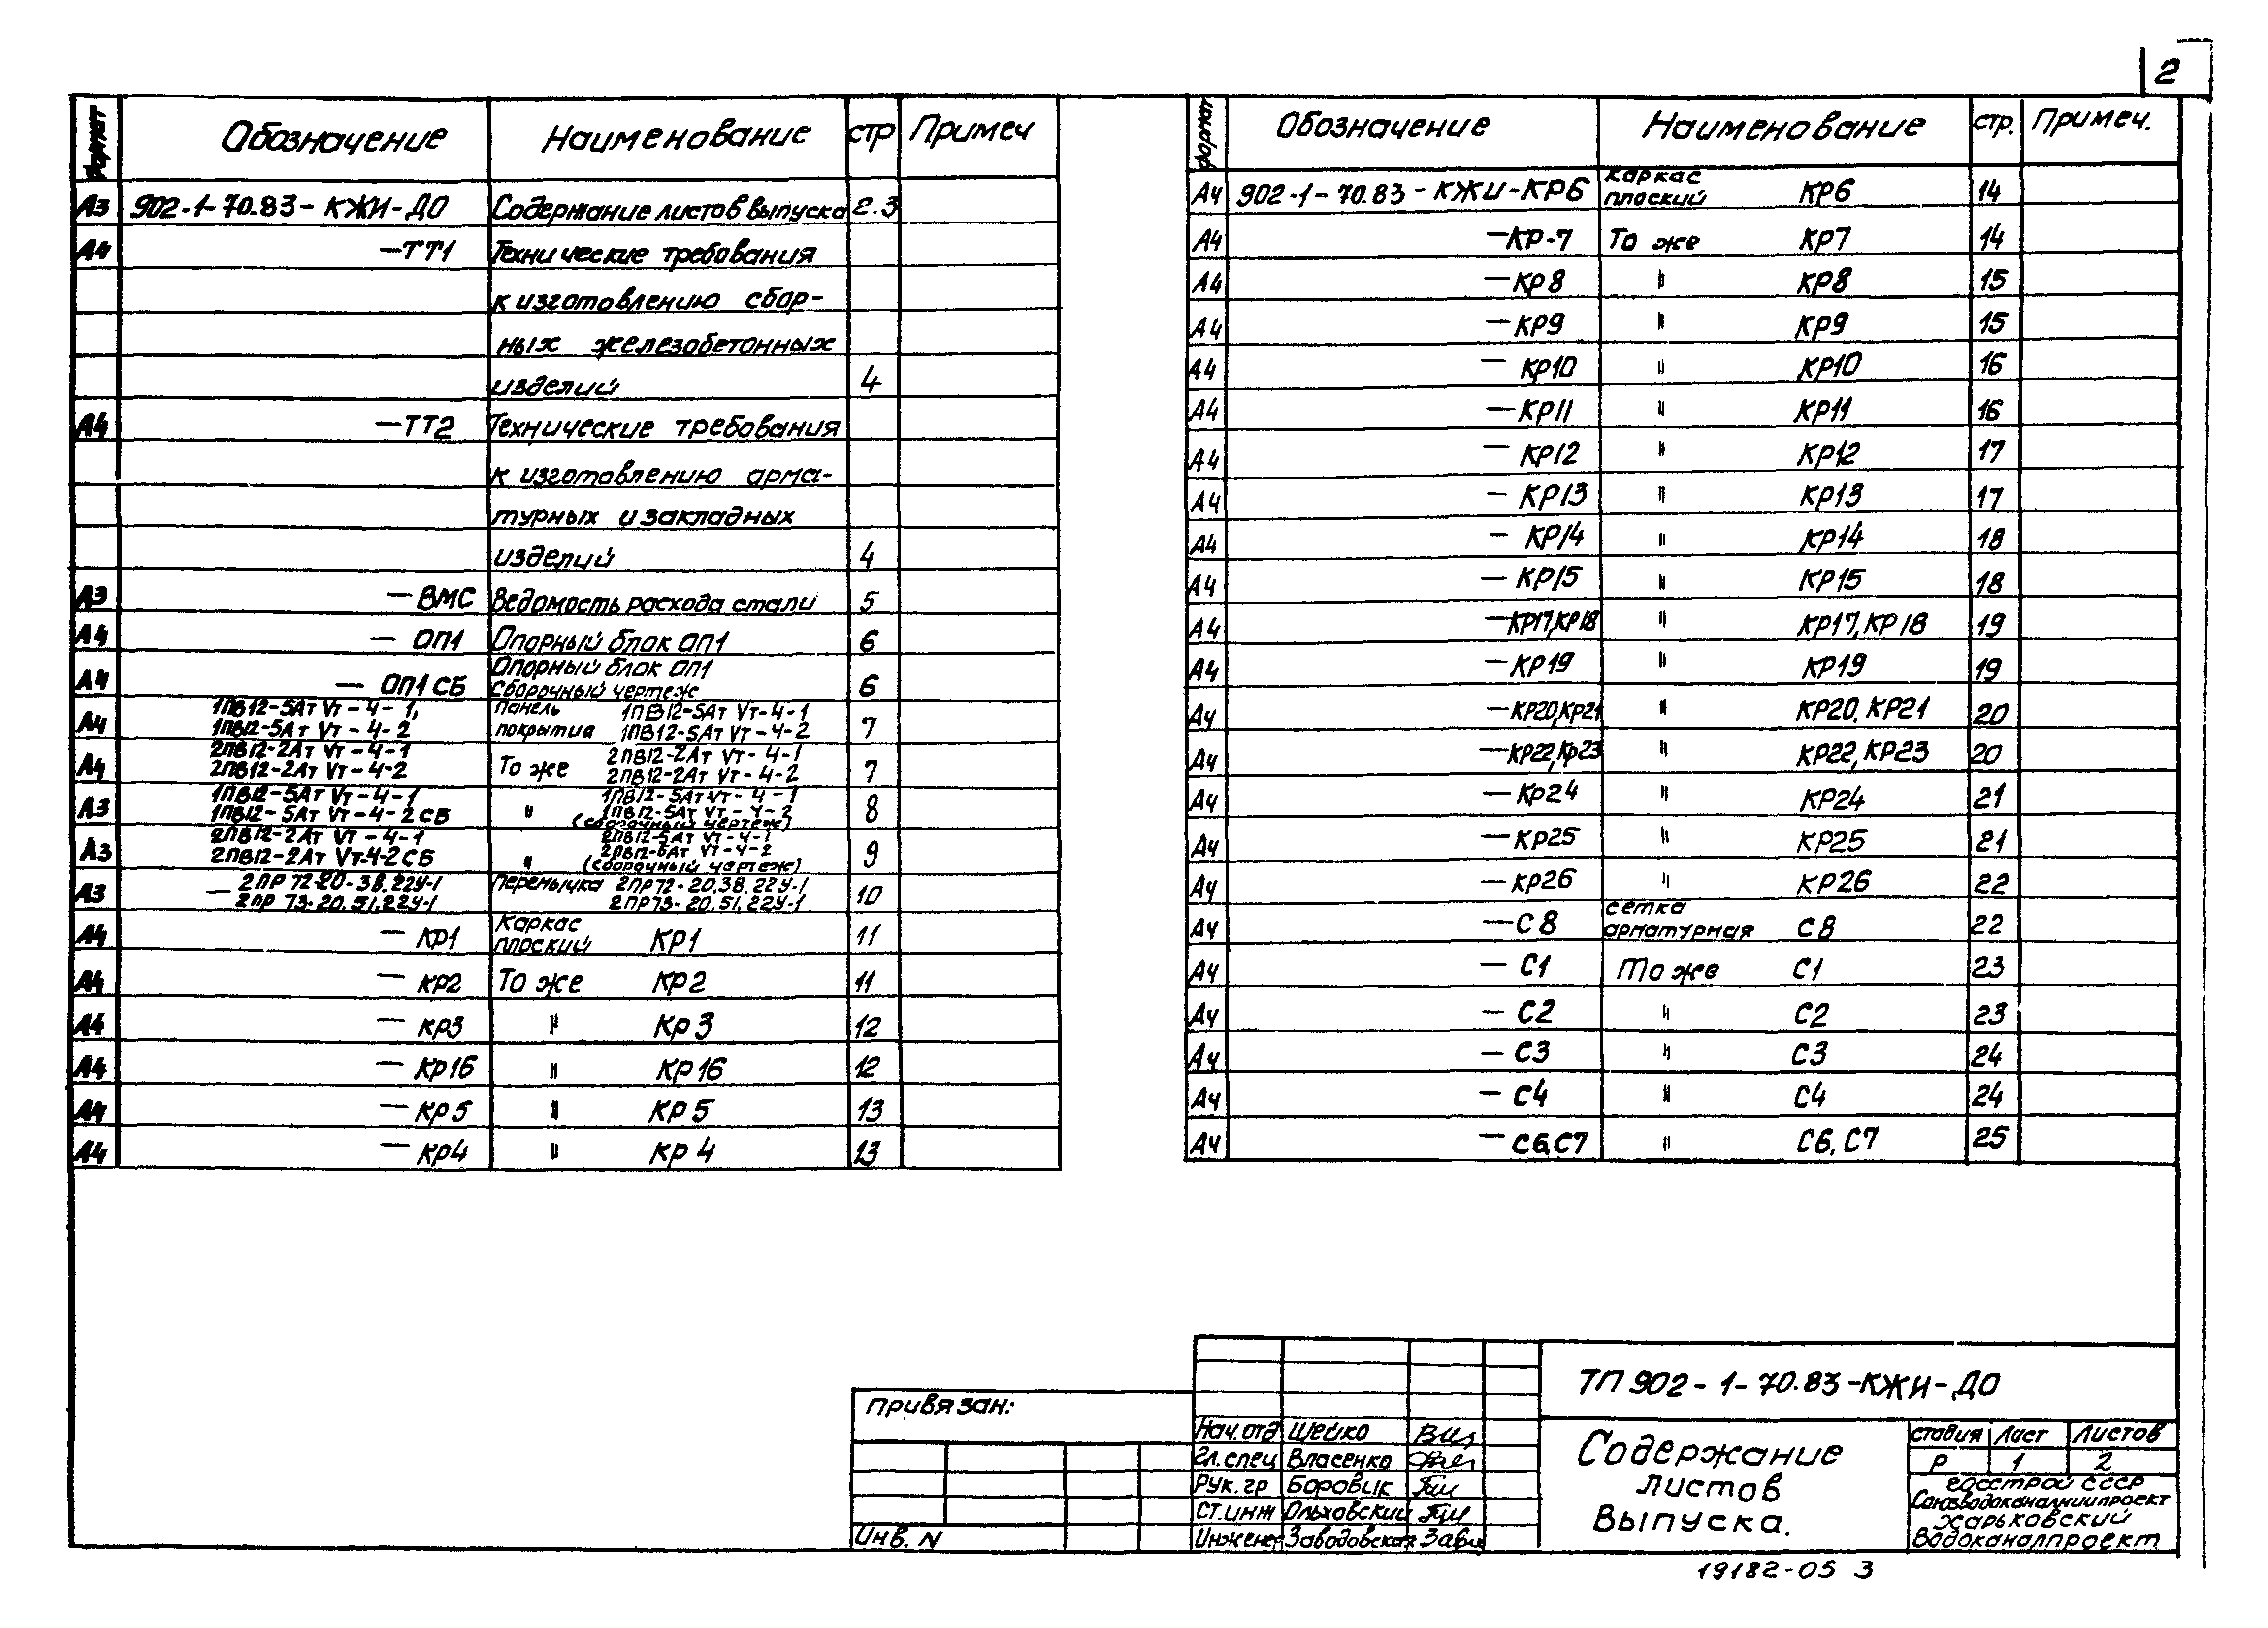 2
формат Обозначение Наименование стр Примеч
А3 902-1-70.83-КЖИ-ДО Содержание листов выпуска 2.3
А4 -ТТ1 Технические требования
к изготовлению сбор-
ных железобетонных
изделий 4
А4 -ТТ2 Технические требования
к изготовлению арма-
турных и закладных
изделий 4
А3 -ВМС Ведомость расхода стали 5
А4 - ОП1 Опорный блок ОП1 6
Опорный блок ОП1
А4 - ОП1 СБ Сборочный чертеж 6
1ПВ12-5Ат Vт-4-1, Панель 1ПВ12-5Ат Vт-4-1
А4 1ПВ12-5Ат Vт-4-2 покрытия 1ПВ12-5Ат Vт-4-2 7
2ПВ12-2Ат Vт-4-1 2ПВ12-2Ат Vт-4-1
А4 2ПВ12-2Ат Vт-4-2 То же 2ПВ12-2Ат Vт-4-2 7
1ПВ12-5Ат Vт-4-1 1ПВ12-5Ат Vт-4-1
А3 1ПВ12-5Ат Vт-4-2 СБ " 1ПВ12-5Ат Vт-4-2 8
(сборочный чертеж)
2ПВ12-2Ат Vт-4-1 2ПВ12-5Ат Vт-4-1
А3 2ПВ12-2Ат Vт-4-2 СБ " 2ПВ12-5Ат Vт-4-2 9
(сборочный чертеж)
- 2ПР 72-20-38.22У-1 Перемычка 2ПР72-20.38.22У-1
А3 2ПР 73-20.51.22У-1 2ПР73-20.51.22У-1 10
Каркас
А4 - КР1 плоский КР1 11
А4 - КР2 То же КР2 11
А4 - КР3 " КР3 12
А4 - КР16 " КР16 12
А4 - КР5 " КР5 13
А4 - КР4 " КР4 13
формат Обозначение Наименование стр. Примеч.
каркас
А4 902-1-70.83-КЖИ-КР6 плоский КР6 14
А4 -КР-7 То же КР7 14
А4 -КР8 " КР8 15
А4 -КР9 " КР9 15
А4 - КР10 " КР10 16
А4 -КР11 " КР11 16
А4 - КР12 " КР12 17
А4 - КР13 " КР13 17
А4 - КР14 " КР14 18
А4 - КР15 " КР15 18
А4 -КР17,КР18 " КР17, КР18 19
А4 -КР19 " КР19 19
А4 -КР20,КР21 " КР20, КР21 20
А4 -КР22,КР23 " КР22, КР23 20
А4 -КР24 " КР24 21
А4 -КР25 " КР25 21
А4 -КР26 " КР26 22
сетка
А4 -С8 арматурная С8 22
А4 - С1 То же С1 23
А4 - С2 " С2 23
А4 - С3 " С3 24
А4 - С4 " С4 24
А4 - С6,С7 " С6, С7 25
Привязан:
Инв. N
Нач.отд Шейко
Гл.спец Власенко
Рук.гр Боровик
Ст.инж Ольховский
Инженер Заводовская
ТП 902-1-70.83-КЖИ-ДО
Содержание
листов
выпуска.
стадия Лист Листов
Р 1 2
Госстрой СССР
Союзводоканалниипроект
Харьковский
Водоканалпроект
19182-05 3